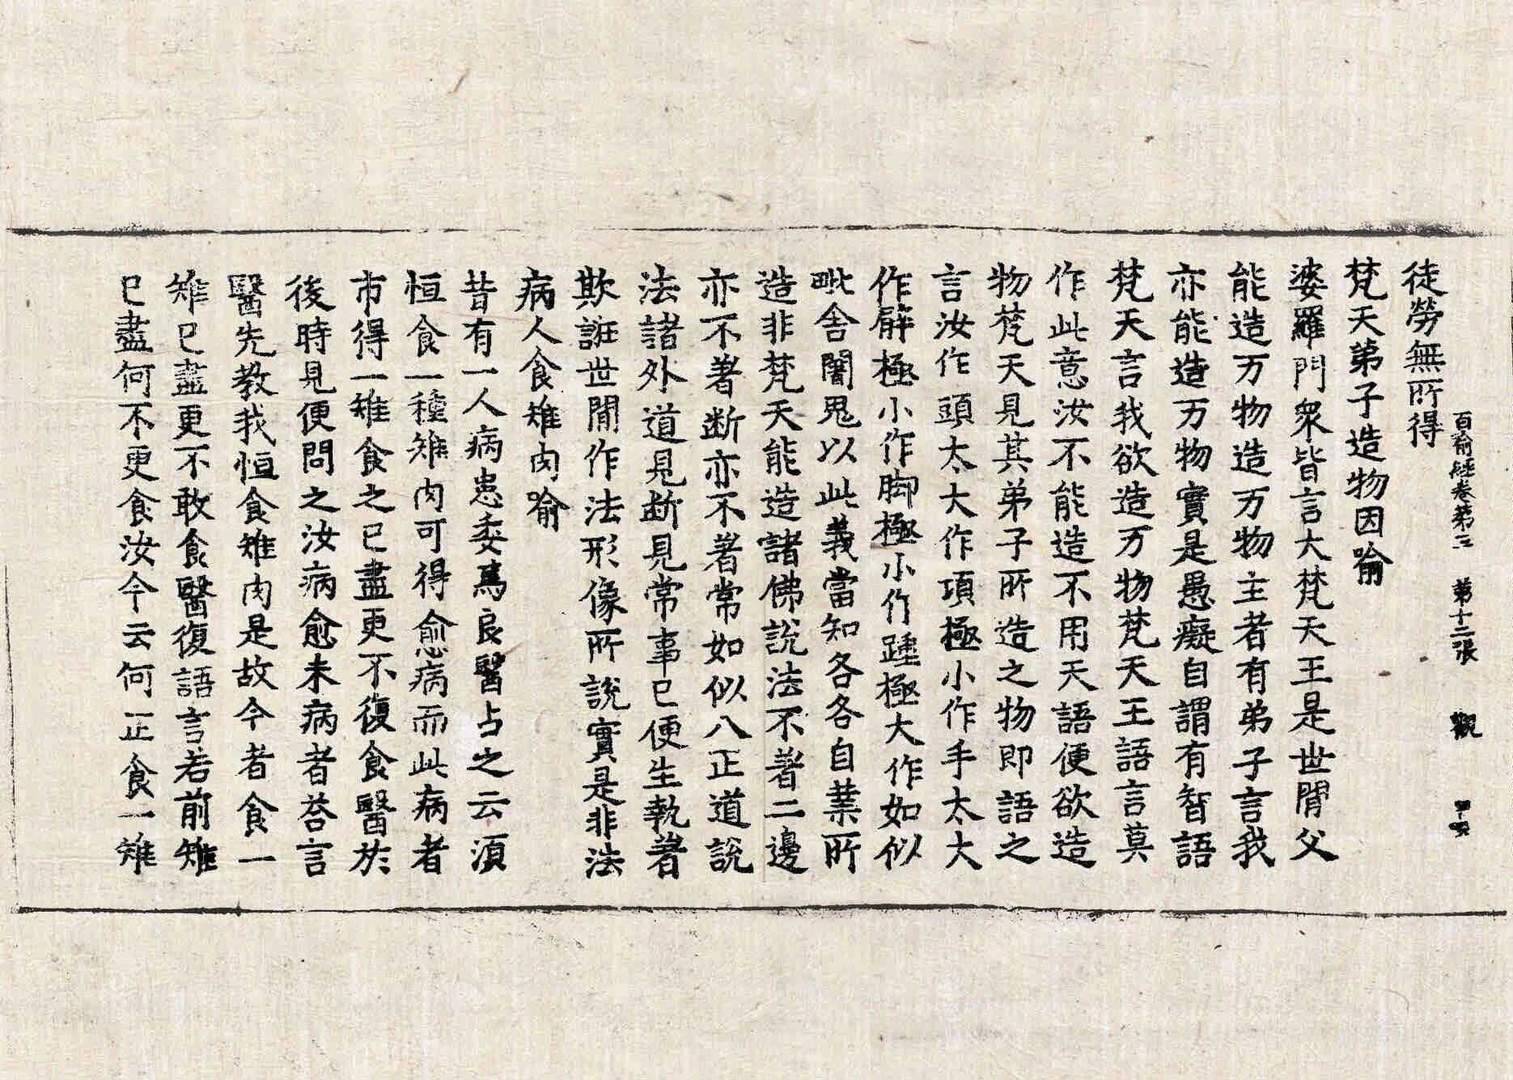 百喻経卷第三　第十二張　觀
徒勞無所得
梵天弟子造物因喻
婆羅門衆皆言大梵天王是世閒父
能造万物造万物主者有弟子言我
亦能造万物實是愚癡自謂有智語
梵天言我欲造万物梵天王語言莫
作此意汝不能造不用天語便欲造
物梵天見其弟子所造之物即語之
言汝作頭太大作項極小作手太大
作臂極小作脚極小作踵極大作如似
毗舍闍鬼以此義當知各各自業所
造非梵天能造諸佛說法不著二邊
亦不著断亦不著常如似八正道說
法諸外道見断見常事已便生執著
欺誑世閒作法形像所說實是非法
病人食雉肉喻
昔有一人病患委篤良醫占之云須
恒食一種雉肉可得愈病而此病者
市得一雉食之已盡更不復食醫於
後時見便問之汝病愈未病者荅言
醫先教我恒食雉肉是故今者食一
雉已盡更不敢食醫復語言若前雉
已盡何不更食汝今云何正食一雉